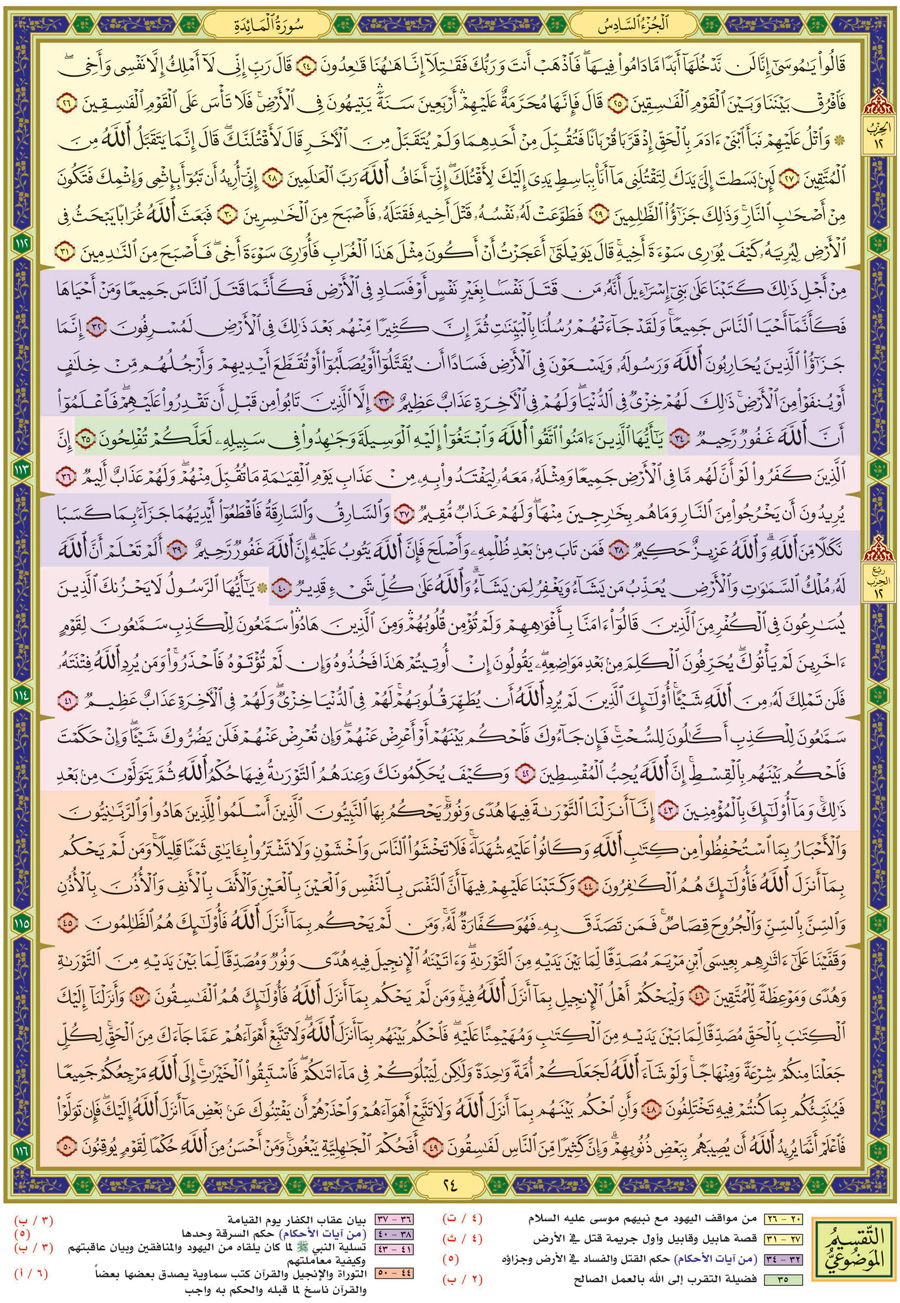 الجزء السادس
سورة المائدة
قَالُوا۟ يَـٰمُوسَىٰٓ إِنَّا لَن نَّدْخُلَهَآ أَبَدًا مَّا دَامُوا۟ فِيهَا ۖ فَٱذْهَبْ أَنتَ وَرَبُّكَ فَقَـٰتِلَآ إِنَّا هَـٰهُنَا قَـٰعِدُونَ ٢٤ قَالَ رَبِّ إِنِّى لَآ أَمْلِكُ إِلَّا نَفْسِى وَأَخِى ۖ
فَٱفْرُقْ بَيْنَنَا وَبَيْنَ ٱلْقَوْمِ ٱلْفَـٰسِقِينَ ٢٥ قَالَ فَإِنَّهَا مُحَرَّمَةٌ عَلَيْهِمْ ۛ أَرْبَعِينَ سَنَةً ۛ يَتِيهُونَ فِى ٱلْأَرْضِ ۚ فَلَا تَأْسَ عَلَى ٱلْقَوْمِ ٱلْفَـٰسِقِينَ ٢٦
۞ وَٱتْلُ عَلَيْهِمْ نَبَأَ ٱبْنَىْ ءَادَمَ بِٱلْحَقِّ إِذْ قَرَّبَا قُرْبَانًا فَتُقُبِّلَ مِنْ أَحَدِهِمَا وَلَمْ يُتَقَبَّلْ مِنَ ٱلْـَٔاخَرِ قَالَ لَأَقْتُلَنَّكَ ۖ قَالَ إِنَّمَا يَتَقَبَّلُ ٱللَّهُ مِنَ
ٱلْمُتَّقِينَ ٢٧ لَئِنۢ بَسَطتَ إِلَىَّ يَدَكَ لِتَقْتُلَنِى مَآ أَنَا۠ بِبَاسِطٍ يَدِىَ إِلَيْكَ لِأَقْتُلَكَ ۖ إِنِّىٓ أَخَافُ ٱللَّهَ رَبَّ ٱلْعَـٰلَمِينَ ٢٨ إِنِّىٓ أُرِيدُ أَن تَبُوٓأَ بِإِثْمِى وَإِثْمِكَ فَتَكُونَ
مِنْ أَصْحَـٰبِ ٱلنَّارِ ۚ وَذَٰلِكَ جَزَٰٓؤُا۟ ٱلظَّـٰلِمِينَ ٢٩ فَطَوَّعَتْ لَهُۥ نَفْسُهُۥ قَتْلَ أَخِيهِ فَقَتَلَهُۥ فَأَصْبَحَ مِنَ ٱلْخَـٰسِرِينَ ٣٠ فَبَعَثَ ٱللَّهُ غُرَابًا يَبْحَثُ فِى
ٱلْأَرْضِ لِيُرِيَهُۥ كَيْفَ يُوَٰرِى سَوْءَةَ أَخِيهِ ۚ قَالَ يَـٰوَيْلَتَىٰٓ أَعَجَزْتُ أَنْ أَكُونَ مِثْلَ هَـٰذَا ٱلْغُرَابِ فَأُوَٰرِىَ سَوْءَةَ أَخِى ۖ فَأَصْبَحَ مِنَ ٱلنَّـٰدِمِينَ ٣١
مِنْ أَجْلِ ذَٰلِكَ كَتَبْنَا عَلَىٰ بَنِىٓ إِسْرَٰٓءِيلَ أَنَّهُۥ مَن قَتَلَ نَفْسًۢا بِغَيْرِ نَفْسٍ أَوْ فَسَادٍ فِى ٱلْأَرْضِ فَكَأَنَّمَا قَتَلَ ٱلنَّاسَ جَمِيعًا وَمَنْ أَحْيَاهَا
فَكَأَنَّمَآ أَحْيَا ٱلنَّاسَ جَمِيعًا ۚ وَلَقَدْ جَآءَتْهُمْ رُسُلُنَا بِٱلْبَيِّنَـٰتِ ثُمَّ إِنَّ كَثِيرًا مِّنْهُم بَعْدَ ذَٰلِكَ فِى ٱلْأَرْضِ لَمُسْرِفُونَ ٣٢ إِنَّمَا
جَزَٰٓؤُا۟ ٱلَّذِينَ يُحَارِبُونَ ٱللَّهَ وَرَسُولَهُۥ وَيَسْعَوْنَ فِى ٱلْأَرْضِ فَسَادًا أَن يُقَتَّلُوٓا۟ أَوْ يُصَلَّبُوٓا۟ أَوْ تُقَطَّعَ أَيْدِيهِمْ وَأَرْجُلُهُم مِّنْ خِلَـٰفٍ
أَوْ يُنفَوْا۟ مِنَ ٱلْأَرْضِ ۚ ذَٰلِكَ لَهُمْ خِزْىٌ فِى ٱلدُّنْيَا ۖ وَلَهُمْ فِى ٱلْـَٔاخِرَةِ عَذَابٌ عَظِيمٌ ٣٣ إِلَّا ٱلَّذِينَ تَابُوا۟ مِن قَبْلِ أَن تَقْدِرُوا۟ عَلَيْهِمْ ۖ فَٱعْلَمُوٓا۟
أَنَّ ٱللَّهَ غَفُورٌ رَّحِيمٌ ٣٤ يَـٰٓأَيُّهَا ٱلَّذِينَ ءَامَنُوا۟ ٱتَّقُوا۟ ٱللَّهَ وَٱبْتَغُوٓا۟ إِلَيْهِ ٱلْوَسِيلَةَ وَجَـٰهِدُوا۟ فِى سَبِيلِهِۦ لَعَلَّكُمْ تُفْلِحُونَ ٣٥ إِنَّ
ٱلَّذِينَ كَفَرُوا۟ لَوْ أَنَّ لَهُم مَّا فِى ٱلْأَرْضِ جَمِيعًا وَمِثْلَهُۥ مَعَهُۥ لِيَفْتَدُوا۟ بِهِۦ مِنْ عَذَابِ يَوْمِ ٱلْقِيَـٰمَةِ مَا تُقُبِّلَ مِنْهُمْ ۖ وَلَهُمْ عَذَابٌ أَلِيمٌ ٣٦
يُرِيدُونَ أَن يَخْرُجُوا۟ مِنَ ٱلنَّارِ وَمَا هُم بِخَـٰرِجِينَ مِنْهَا ۖ وَلَهُمْ عَذَابٌ مُّقِيمٌ ٣٧ وَٱلسَّارِقُ وَٱلسَّارِقَةُ فَٱقْطَعُوٓا۟ أَيْدِيَهُمَا جَزَآءًۢ بِمَا كَسَبَا
نَكَـٰلًا مِّنَ ٱللَّهِ ۗ وَٱللَّهُ عَزِيزٌ حَكِيمٌ ٣٨ فَمَن تَابَ مِنۢ بَعْدِ ظُلْمِهِۦ وَأَصْلَحَ فَإِنَّ ٱللَّهَ يَتُوبُ عَلَيْهِ ۗ إِنَّ ٱللَّهَ غَفُورٌ رَّحِيمٌ ٣٩ أَلَمْ تَعْلَمْ أَنَّ ٱللَّهَ
لَهُۥ مُلْكُ ٱلسَّمَـٰوَٰتِ وَٱلْأَرْضِ يُعَذِّبُ مَن يَشَآءُ وَيَغْفِرُ لِمَن يَشَآءُ ۗ وَٱللَّهُ عَلَىٰ كُلِّ شَىْءٍ قَدِيرٌ ٤٠ ۞ يَـٰٓأَيُّهَا ٱلرَّسُولُ لَا يَحْزُنكَ ٱلَّذِينَ
يُسَـٰرِعُونَ فِى ٱلْكُفْرِ مِنَ ٱلَّذِينَ قَالُوٓا۟ ءَامَنَّا بِأَفْوَٰهِهِمْ وَلَمْ تُؤْمِن قُلُوبُهُمْ ۛ وَمِنَ ٱلَّذِينَ هَادُوا۟ ۛ سَمَّـٰعُونَ لِلْكَذِبِ سَمَّـٰعُونَ لِقَوْمٍ
ءَاخَرِينَ لَمْ يَأْتُوكَ ۖ يُحَرِّفُونَ ٱلْكَلِمَ مِنۢ بَعْدِ مَوَاضِعِهِۦ ۖ يَقُولُونَ إِنْ أُوتِيتُمْ هَـٰذَا فَخُذُوهُ وَإِن لَّمْ تُؤْتَوْهُ فَٱحْذَرُوا۟ ۚ وَمَن يُرِدِ ٱللَّهُ فِتْنَتَهُۥ
فَلَن تَمْلِكَ لَهُۥ مِنَ ٱللَّهِ شَيْـًٔا ۚ أُو۟لَـٰٓئِكَ ٱلَّذِينَ لَمْ يُرِدِ ٱللَّهُ أَن يُطَهِّرَ قُلُوبَهُمْ ۚ لَهُمْ فِى ٱلدُّنْيَا خِزْىٌ ۖ وَلَهُمْ فِى ٱلْـَٔاخِرَةِ عَذَابٌ عَظِيمٌ ٤١
سَمَّـٰعُونَ لِلْكَذِبِ أَكَّـٰلُونَ لِلسُّحْتِ ۚ فَإِن جَآءُوكَ فَٱحْكُم بَيْنَهُمْ أَوْ أَعْرِضْ عَنْهُمْ ۖ وَإِن تُعْرِضْ عَنْهُمْ فَلَن يَضُرُّوكَ شَيْـًٔا ۖ وَإِنْ حَكَمْتَ
فَٱحْكُم بَيْنَهُم بِٱلْقِسْطِ ۚ إِنَّ ٱللَّهَ يُحِبُّ ٱلْمُقْسِطِينَ ٤٢ وَكَيْفَ يُحَكِّمُونَكَ وَعِندَهُمُ ٱلتَّوْرَىٰةُ فِيهَا حُكْمُ ٱللَّهِ ثُمَّ يَتَوَلَّوْنَ مِنۢ بَعْدِ
ذَٰلِكَ ۚ وَمَآ أُو۟لَـٰٓئِكَ بِٱلْمُؤْمِنِينَ ٤٣ إِنَّآ أَنزَلْنَا ٱلتَّوْرَىٰةَ فِيهَا هُدًى وَنُورٌ ۚ يَحْكُمُ بِهَا ٱلنَّبِيُّونَ ٱلَّذِينَ أَسْلَمُوا۟ لِلَّذِينَ هَادُوا۟ وَٱلرَّبَّـٰنِيُّونَ
وَٱلْأَحْبَارُ بِمَا ٱسْتُحْفِظُوا۟ مِن كِتَـٰبِ ٱللَّهِ وَكَانُوا۟ عَلَيْهِ شُهَدَآءَ ۚ فَلَا تَخْشَوُا۟ ٱلنَّاسَ وَٱخْشَوْنِ وَلَا تَشْتَرُوا۟ بِـَٔايَـٰتِى ثَمَنًا قَلِيلًا ۚ وَمَن لَّمْ يَحْكُم
بِمَآ أَنزَلَ ٱللَّهُ فَأُو۟لَـٰٓئِكَ هُمُ ٱلْكَـٰفِرُونَ ٤٤ وَكَتَبْنَا عَلَيْهِمْ فِيهَآ أَنَّ ٱلنَّفْسَ بِٱلنَّفْسِ وَٱلْعَيْنَ بِٱلْعَيْنِ وَٱلْأَنفَ بِٱلْأَنفِ وَٱلْأُذُنَ بِٱلْأُذُنِ
وَٱلسِّنَّ بِٱلسِّنِّ وَٱلْجُرُوحَ قِصَاصٌ ۚ فَمَن تَصَدَّقَ بِهِۦ فَهُوَ كَفَّارَةٌ لَّهُۥ ۚ وَمَن لَّمْ يَحْكُم بِمَآ أَنزَلَ ٱللَّهُ فَأُو۟لَـٰٓئِكَ هُمُ ٱلظَّـٰلِمُونَ ٤٥
وَقَفَّيْنَا عَلَىٰٓ ءَاثَـٰرِهِم بِعِيسَى ٱبْنِ مَرْيَمَ مُصَدِّقًا لِّمَا بَيْنَ يَدَيْهِ مِنَ ٱلتَّوْرَىٰةِ ۖ وَءَاتَيْنَـٰهُ ٱلْإِنجِيلَ فِيهِ هُدًى وَنُورٌ وَمُصَدِّقًا لِّمَا بَيْنَ يَدَيْهِ مِنَ ٱلتَّوْرَىٰةِ
وَهُدًى وَمَوْعِظَةً لِّلْمُتَّقِينَ ٤٦ وَلْيَحْكُمْ أَهْلُ ٱلْإِنجِيلِ بِمَآ أَنزَلَ ٱللَّهُ فِيهِ ۚ وَمَن لَّمْ يَحْكُم بِمَآ أَنزَلَ ٱللَّهُ فَأُو۟لَـٰٓئِكَ هُمُ ٱلْفَـٰسِقُونَ ٤٧ وَأَنزَلْنَآ إِلَيْكَ
ٱلْكِتَـٰبَ بِٱلْحَقِّ مُصَدِّقًا لِّمَا بَيْنَ يَدَيْهِ مِنَ ٱلْكِتَـٰبِ وَمُهَيْمِنًا عَلَيْهِ ۖ فَٱحْكُم بَيْنَهُم بِمَآ أَنزَلَ ٱللَّهُ ۖ وَلَا تَتَّبِعْ أَهْوَآءَهُمْ عَمَّا جَآءَكَ مِنَ ٱلْحَقِّ ۚ لِكُلٍّ
جَعَلْنَا مِنكُمْ شِرْعَةً وَمِنْهَاجًا ۚ وَلَوْ شَآءَ ٱللَّهُ لَجَعَلَكُمْ أُمَّةً وَٰحِدَةً وَلَـٰكِن لِّيَبْلُوَكُمْ فِى مَآ ءَاتَىٰكُمْ ۖ فَٱسْتَبِقُوا۟ ٱلْخَيْرَٰتِ ۚ إِلَى ٱللَّهِ مَرْجِعُكُمْ جَمِيعًا
فَيُنَبِّئُكُم بِمَا كُنتُمْ فِيهِ تَخْتَلِفُونَ ٤٨ وَأَنِ ٱحْكُم بَيْنَهُم بِمَآ أَنزَلَ ٱللَّهُ وَلَا تَتَّبِعْ أَهْوَآءَهُمْ وَٱحْذَرْهُمْ أَن يَفْتِنُوكَ عَنۢ بَعْضِ مَآ أَنزَلَ ٱللَّهُ إِلَيْكَ ۖ فَإِن تَوَلَّوْا۟
فَٱعْلَمْ أَنَّمَا يُرِيدُ ٱللَّهُ أَن يُصِيبَهُم بِبَعْضِ ذُنُوبِهِمْ ۗ وَإِنَّ كَثِيرًا مِّنَ ٱلنَّاسِ لَفَـٰسِقُونَ ٤٩ أَفَحُكْمَ ٱلْجَـٰهِلِيَّةِ يَبْغُونَ ۚ وَمَنْ أَحْسَنُ مِنَ ٱللَّهِ حُكْمًا لِّقَوْمٍ يُوقِنُونَ ٥٠
الحزب
١٢
ربع
الحزب
١٢
١١٢
١١٣
١١٤
١١٥
١١٦
٢٤
التقسيم
الموضوعي
٢٠ - ٢٦ من مواقف اليهود مع نبيهم موسى عليه السلام (٤ / ت)
٢٧ - ٣١ قصة هابيل وقابيل وأول جريمة قتل في الأرض (٤ / ث)
٣٢ - ٣٤ (من آيات الأحكام) حكم القتل والفساد في الأرض وجزاؤه (٥)
٣٥ فضيلة التقرب إلى الله بالعمل الصالح (٢ / ب)
٣٦ - ٣٧ بيان عقاب الكفار يوم القيامة (٣ / ب)
٣٨ - ٤٠ (من آيات الأحكام) حكم السرقة وحدها (٥)
٤١ - ٤٣ تسلية النبي ﷺ لما كان يلقاه من اليهود والمنافقين وبيان عاقبتهم (٣ / ب)
وكيفية معاملتهم
٤٤ - ٥٠ التوراة والإنجيل والقرآن كتب سماوية يصدق بعضها بعضاً (٦ / أ)
والقرآن ناسخ لما قبله والحكم به واجب